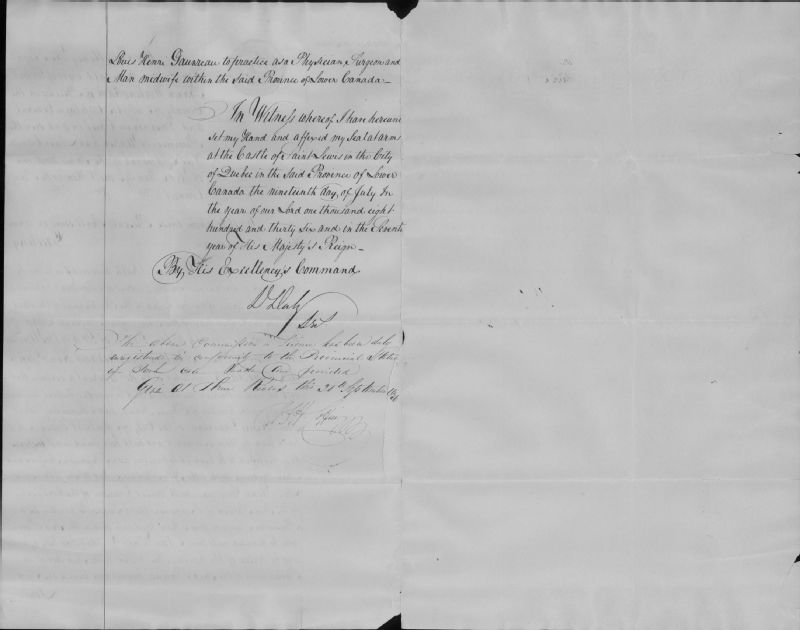 Louis Henri Gauvreau to practice as a Physician, Surgeon and
Man midwife within the said Province of Lower Canada —
In Witness whereof I have hereunto
set my Hand and affixed my Seal at arms
at the Castle of Saint Lewis in the City
of Quebec in the said Province of Lower
Canada the nineteenth day, of July In
the year of our Lord one thousand eight
hundred and thirty six and in the Seventh
year of His Majesty's Reign —
By His Excellency's Command
D Daly
The above Commission or License has been duly
registered in conformity to the Provincial Statute
of such case made and provided
Three Rivers this September